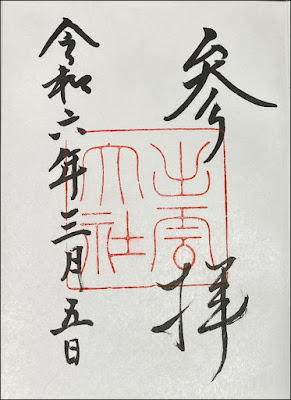 参拝
出雲大社
令和六年三月五日